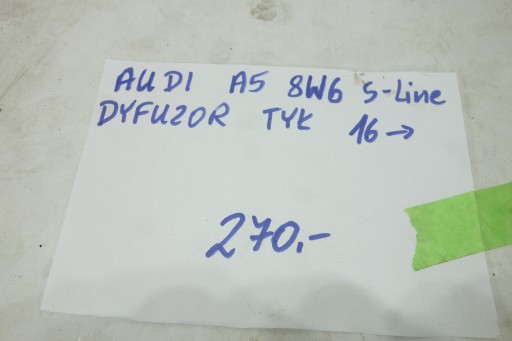 AUDI A5 8W6 S-Line
DYFUZOR TYŁ 16→
270,-